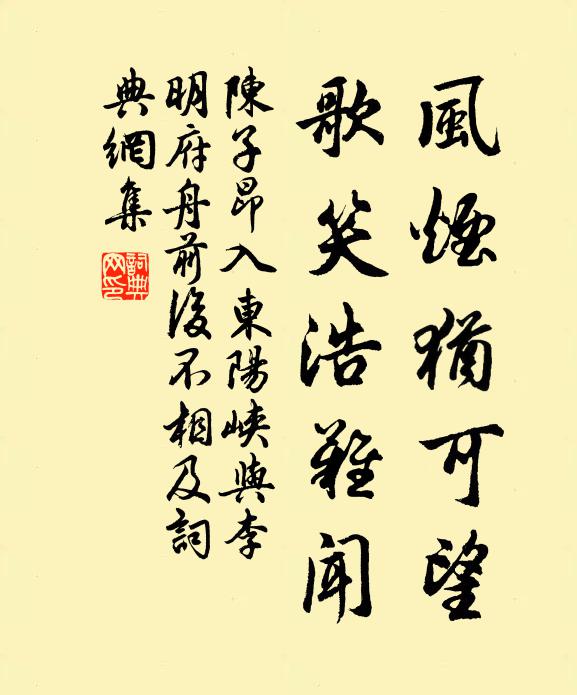 風煙猶可望
歌笑浩難聞
陳子昂入東陽峽與李
明府舟前後不相及詞
典網集
詞典網印